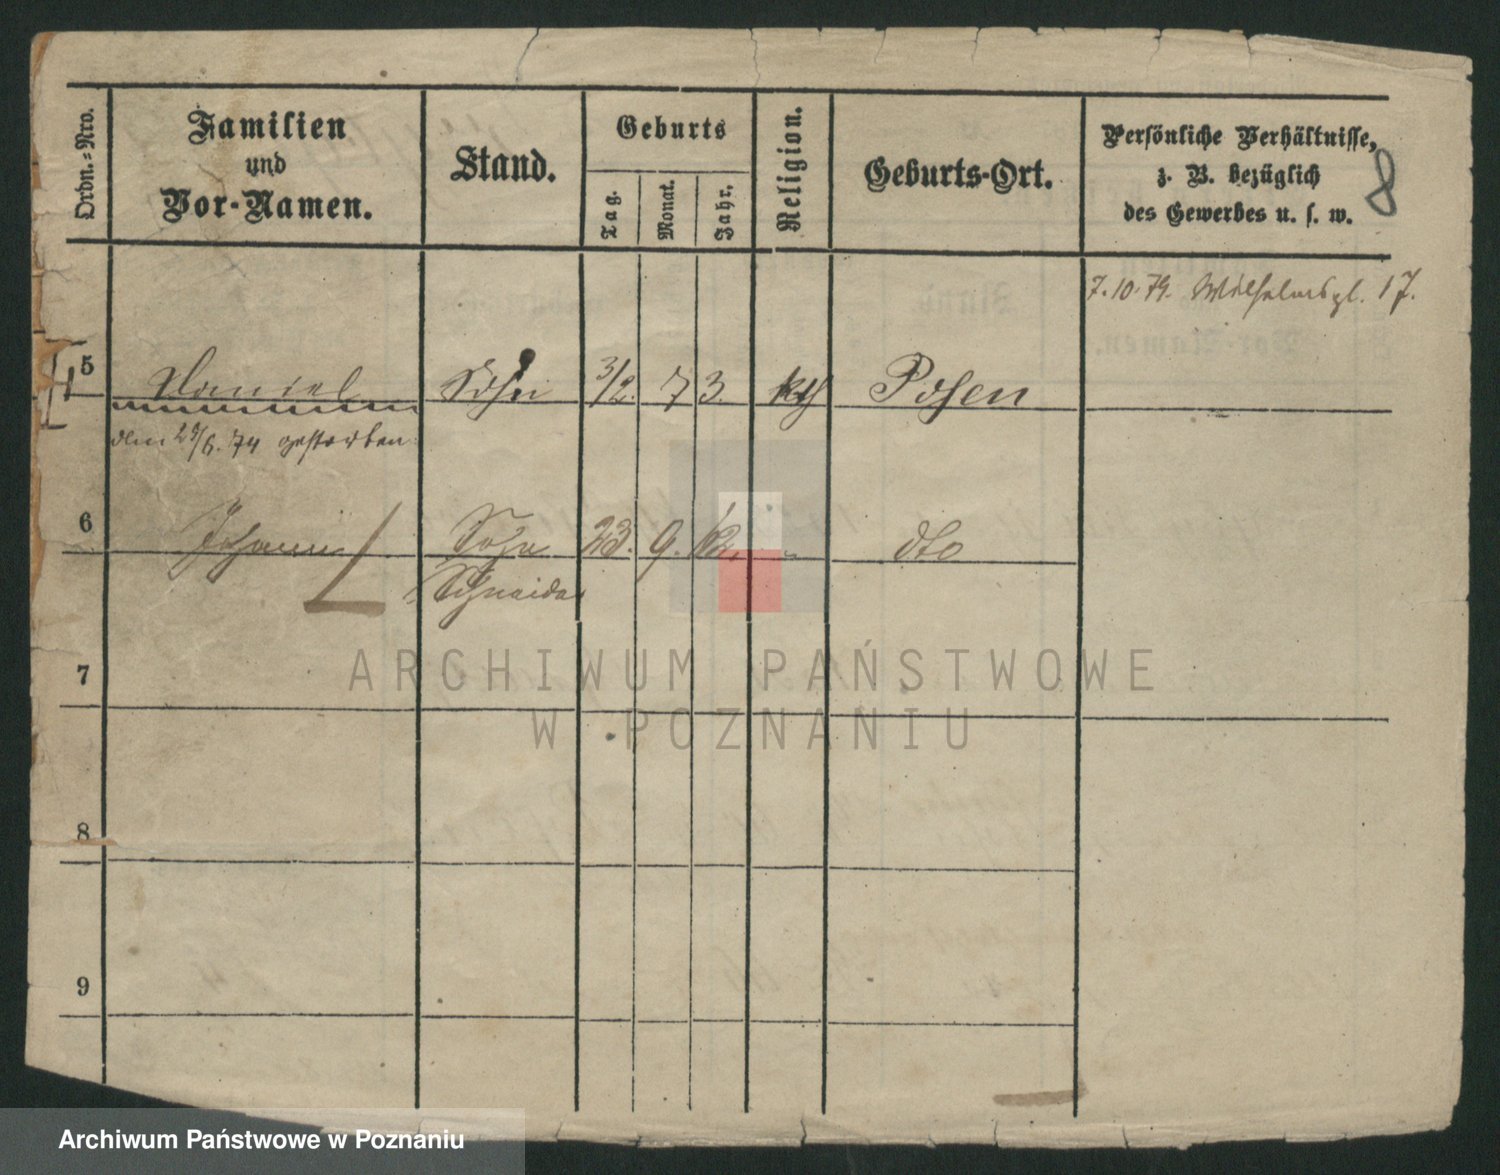 Ordn.=Nro.
Familien
und
Vor-Namen.
Stand.
Geburts
Tag.
Monat.
Jahr.
Religion.
Geburts-Ort.
Persönliche Verhältnisse,
z. B. bezüglich
des Gewerbes u. s. w.
8
7. 10. 79. Wilhelmspl. 17.
5 Daniel Sohn 3/2. 73. kth Posen
den 29/6. 74 gestorben
6 Johann Sohn 23. 9. " dto
Schneider
7
8
9
ARCHIWUM PAŃSTWOWE
W POZNANIU
Archiwum Państwowe w Poznaniu